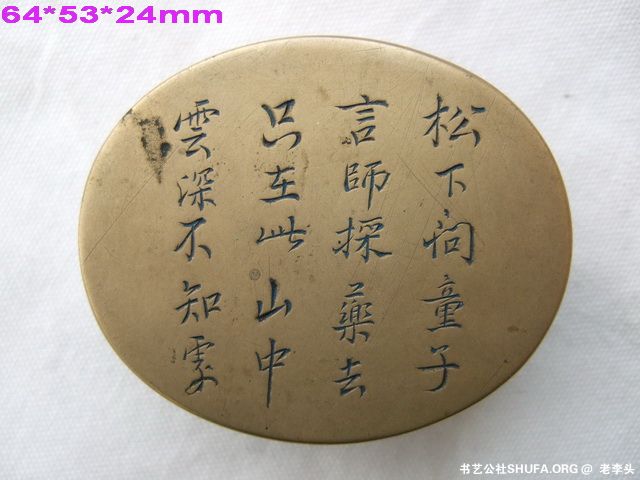 64*53*24mm
松下问童子
言師採藥去
只在此山中
雲深不知處
书艺公社SHUFA.ORG @ 老李头